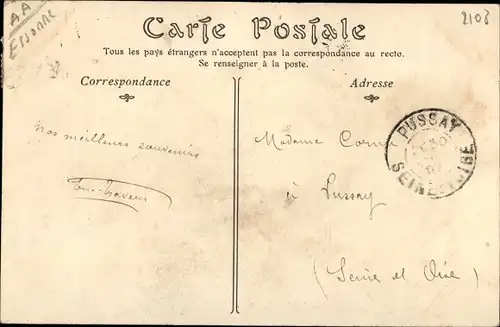 AA
Essonne
2108
Carte Postale
Tous les pays étrangers n'acceptent pas la correspondance au recto.
Se renseigner à la poste.
Correspondance
Adresse
Nos meilleurs souvenirs
Madame
à Pussay
(Seine et Oise)
PUSSAY
SEINE-ET-OISE